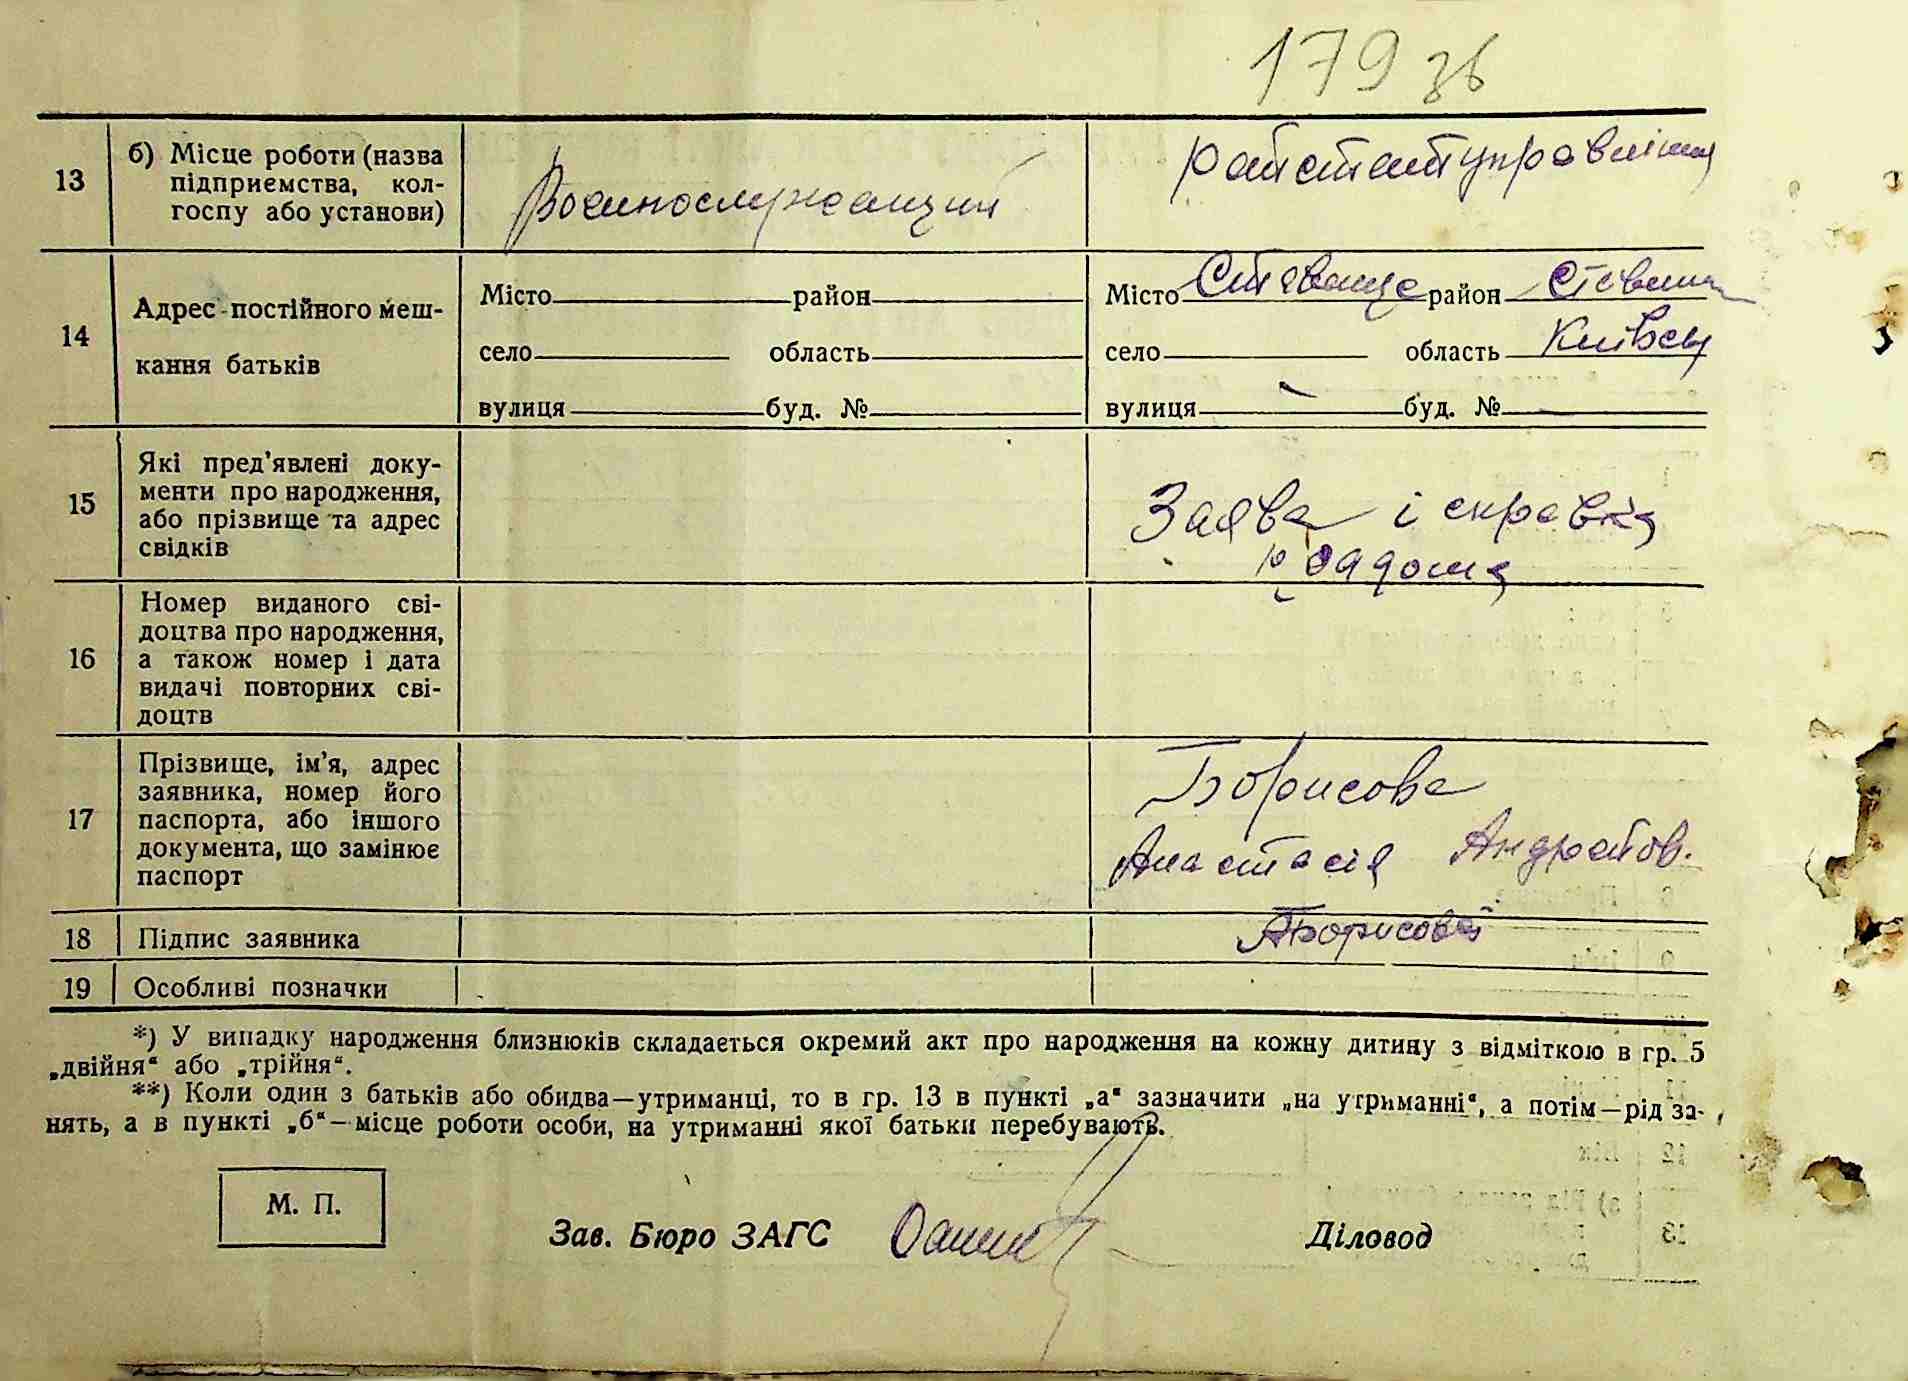 179 зв
13 б) Місце роботи (назва підприємства, кол-госпу або установи) Военнослужащий
14 Адрес постійного меш-
кання батьків
Місто район Місто Ставище район Ставищ
село область село область Київськ
вулиця буд. № вулиця буд. №
15 Які пред'явлені доку-
менти про народження,
або прізвище та адрес
свідків
Заява і справка
роддома
16 Номер виданого сві-
доцтва про народження,
а також номер і дата
видачі повторних сві-
доцтв
17 Прізвище, ім'я, адрес
заявника, номер його
паспорта, або іншого
документа, що замінює
паспорт
Борисова
Анастасія
18 Підпис заявника АБорисова
19 Особливі позначки
*) У випадку народження близнюків складається окремий акт про народження на кожну дитину з відміткою в гр. 5
„двійня“ або „трійня“.
**) Коли один з батьків або обидва—утриманці, то в гр. 13 в пункті „а“ зазначити „на утриманні“, а потім—рід за-
нять, а в пункті „б“—місце роботи особи, на утриманні якої батьки перебувають.
М. П.
Зав. Бюро ЗАГС Діловод